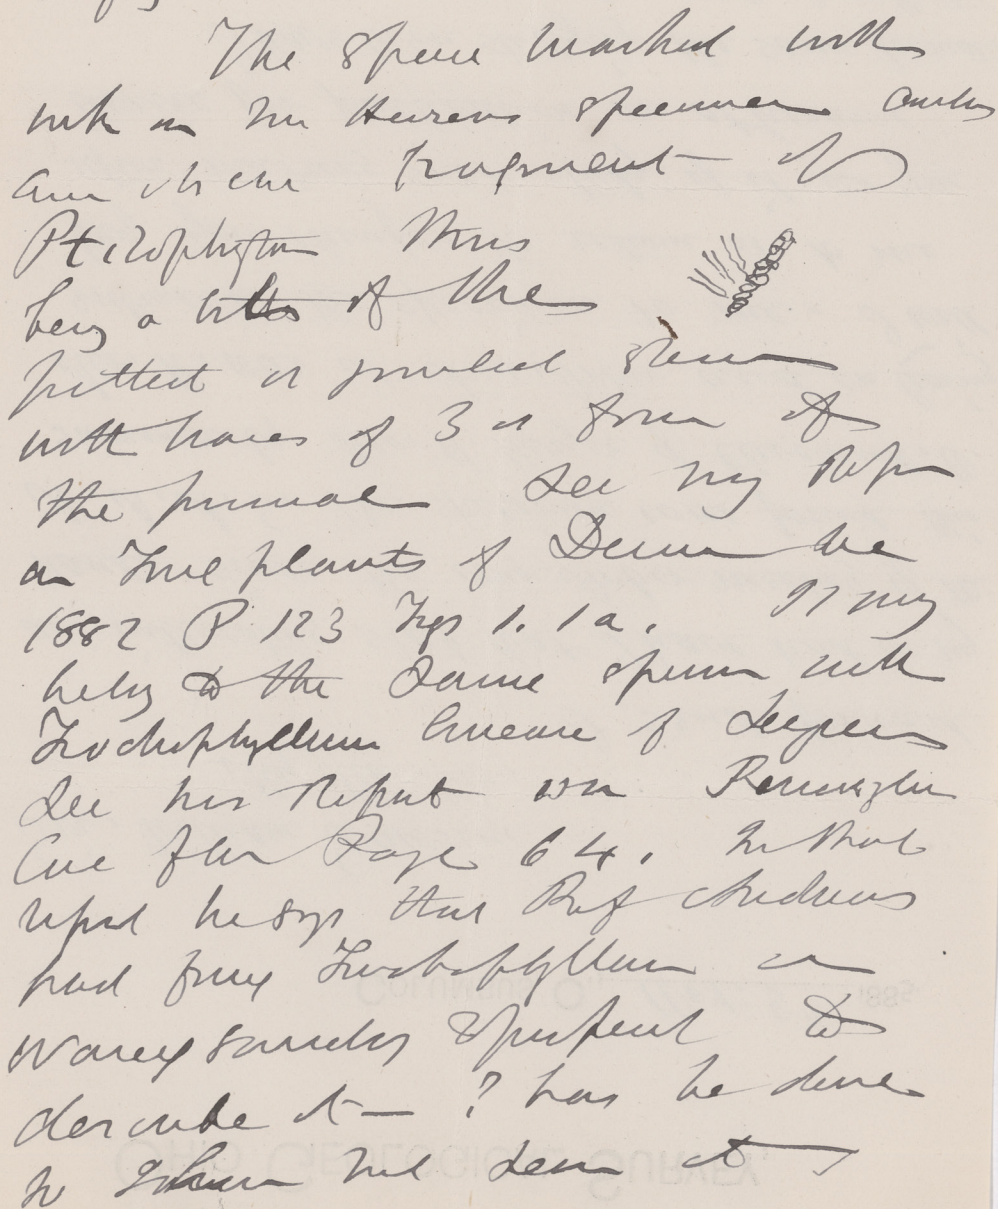 The space marked with
ink on the Hurens specimen
an obscure fragment of
Ptilophyton Thus
being a bit of the
pitted or jointed stem
with traces of 3 or four of
the pinnae See my Rept
on Fossil plants of Devonian
1882 P 123 Figs 1. 1a. It may
belong to the same species with
Trochophyllum lineare of Lesquereux
See his Report on Pennsylvania
Coal flora Page 64. In that
report he says that Prof Andrews
had found Trochophyllum in
Waverly sandstone & proposed to
describe it — ? has he done
so I have not seen it